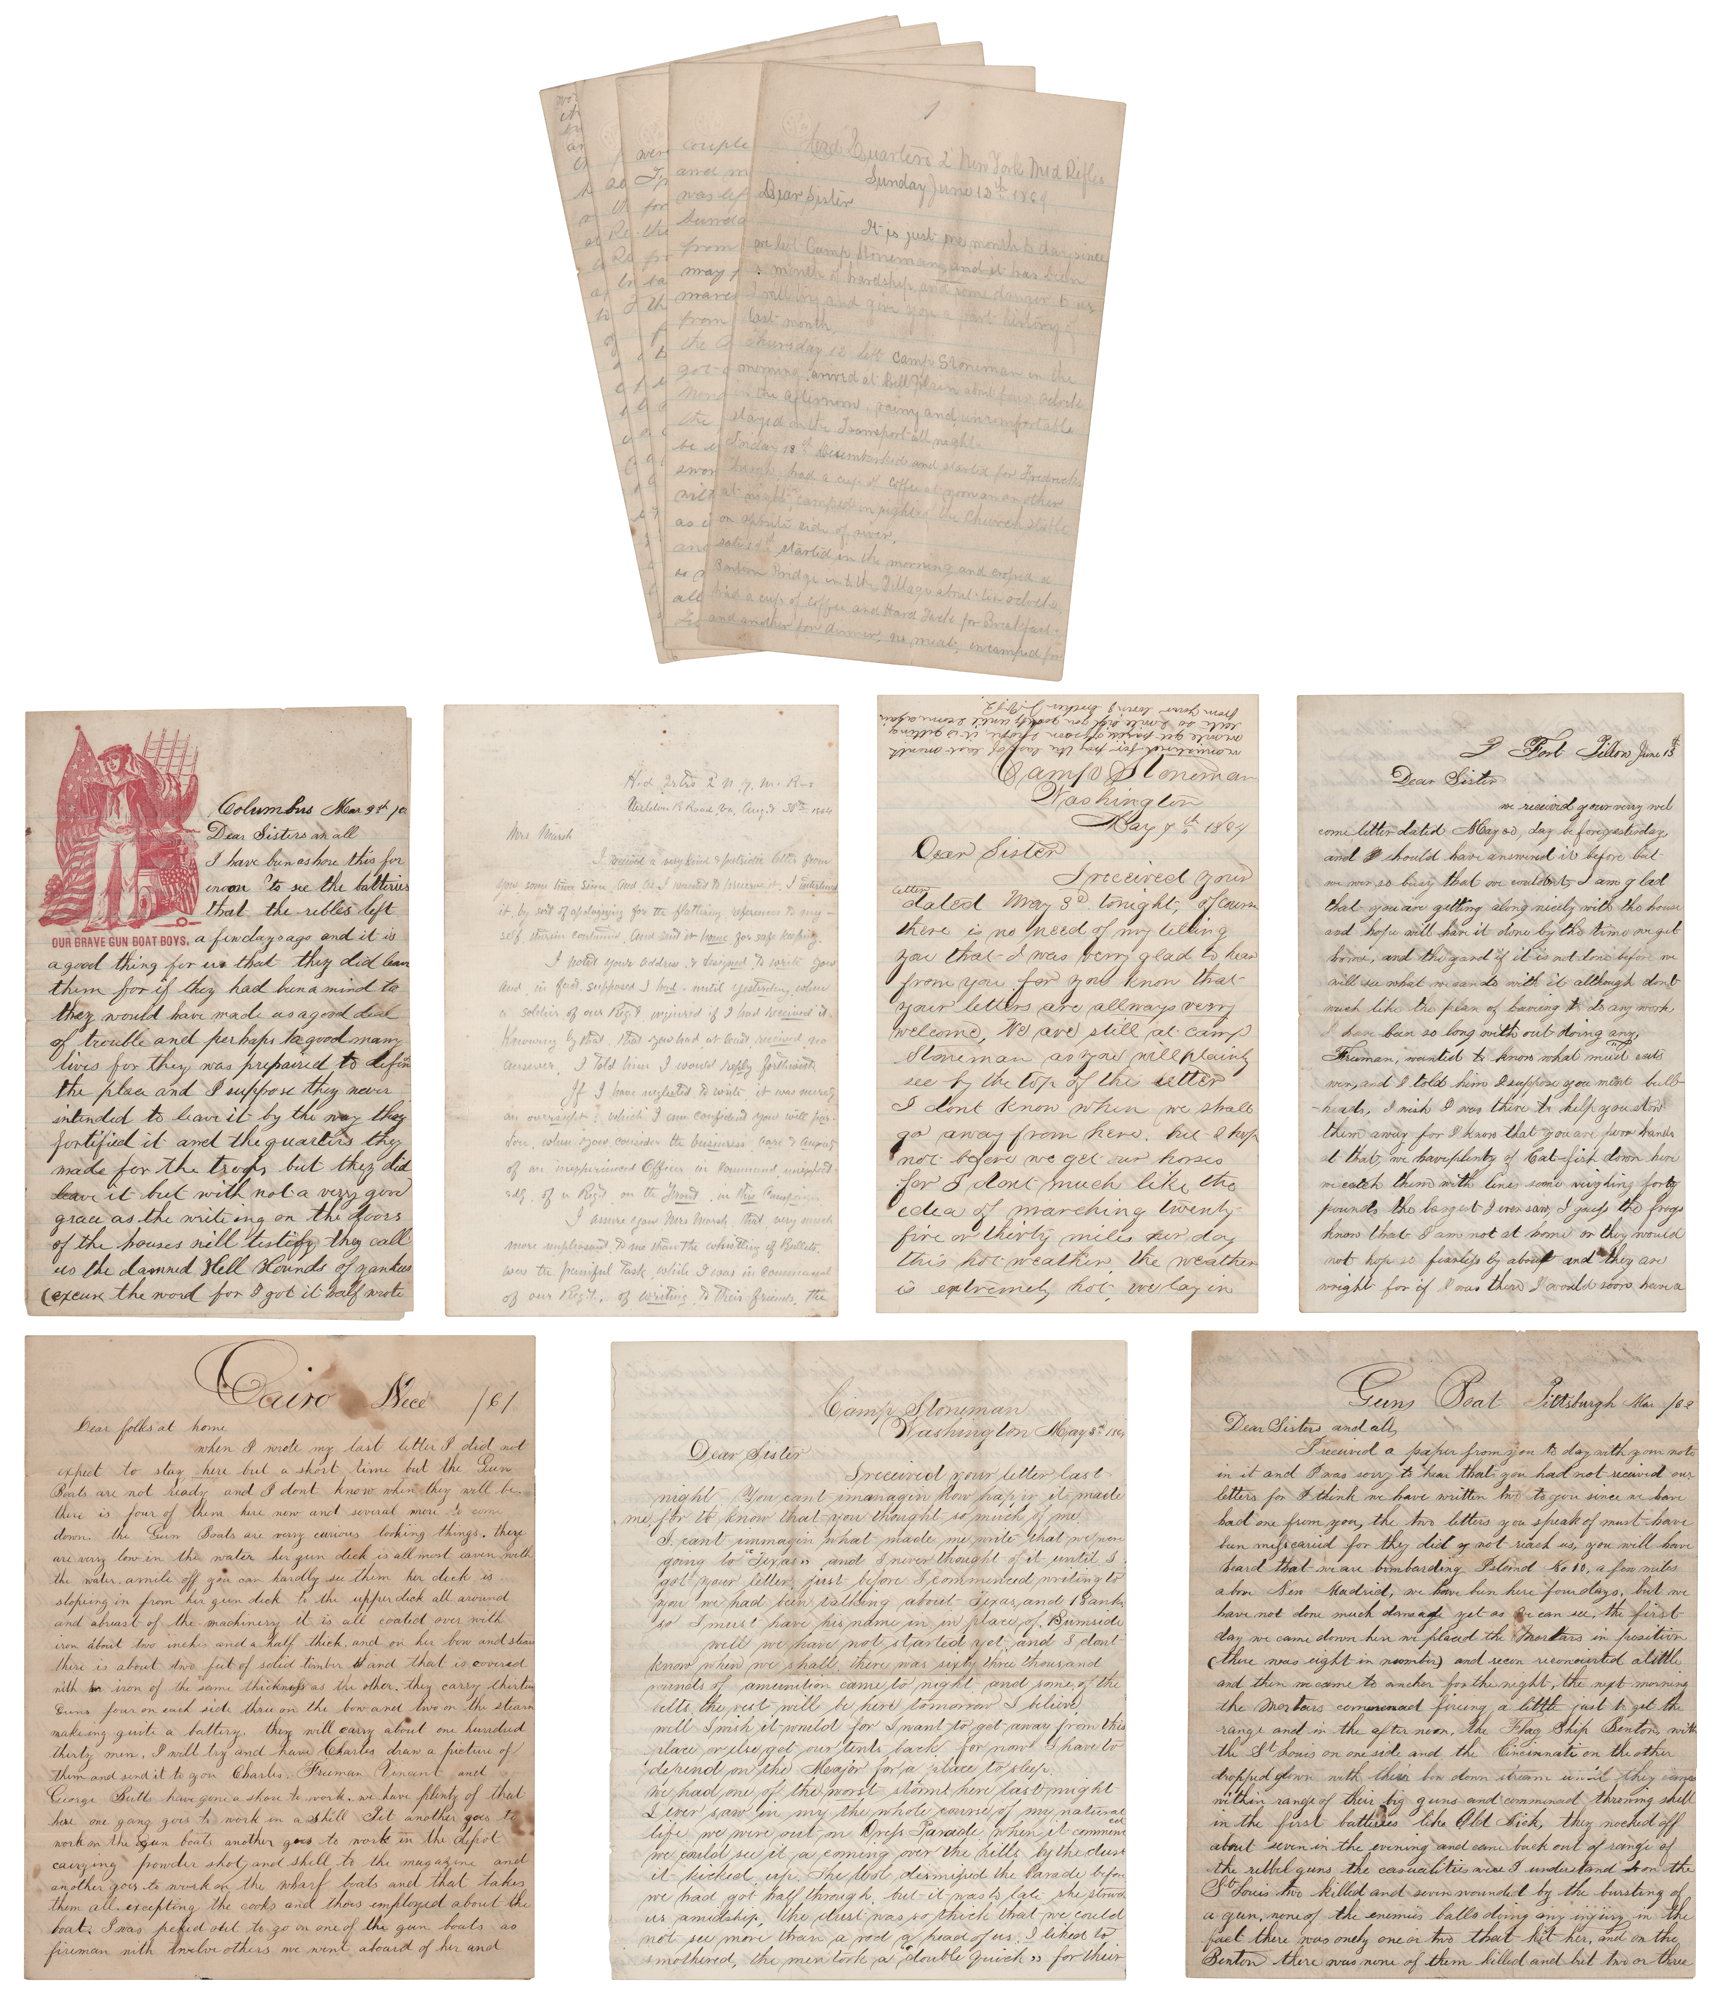 1
Head Quarters 2 New York M'd Rifles
Sunday June 12th 1864
Dear Sister
It is just one month to day since
we left Camp Stoneman, and it has been
a month of hardship and some danger to us
I will try and give you a part history of
last month.
Thursday 12 left Camp Stoneman in the
morning, arrived at Bell Plain about four oclock
in the afternoon, rainy and uncomfortable
stayed on the Transport all night.
Friday 13th Disembarked and started for Fredricks
burgh, had a cup of coffee at noon an another
at night, camped in sight of the Church
on oposite side of river.
started in the morning and crosed a
Pontoon Bridge into the Village about ten oclock
had a cup of Coffee and Hard Tack for Breakfast
and another for dinner, no meat, encamped for
couple
and m
was lef
Sunda
from
may
marc
from
OUR BRAVE GUN BOAT BOYS.
Columbus Mar 9th /62
Dear Sisters an all
I have bin ashore this for
enoon to see the batteries
that the rebles left
a few days ago and it is
a good thing for us that they did leave
them for if they had bena mind to
they would have made us a good deal
of trouble and perhaps to a good many
lives for they was prepaired to defin
the place and I suppose they never
intended to leave it by the way they
fortified it and the quarters they
made for the troops but they did
leave it but with not a very good
grace as the writeing on the doors
of the houses will testify they call
us the damned Hell Hounds of yankees
(excuse the word for I got it half wrote
Hd Qrtrs 2 N.Y.M.R.s
Weldon R Road, Va, Aug 30th 1864
Mrs Marsh
I received a very kind & patriotic letter from
you some time since, And as I wanted to preserve it, I
it, by sort of apologizing for the flattering references to my-
self therein contained, And sent it home for safe keeping.
I noted your address & designed to write you
And, in fact, supposed I had - until yesterday, when
a soldier of our Regt. inquired if I had received it.
Knowing by that, that you had at least received no
answer. I told him I would reply forthwith
If I have neglected to write, it was merely
an oversight; which I am confident you will par-
don, when you consider the business, care &
of an inexperienced Officer in command
of a Regt. on the front, in this Campaign
I assure you Mrs Marsh, that, very much
more unpleasant to me than the whistling of Bullets,
was the painful task, while I was in command
of our Regt. of writing to their friends, the
mustered for pay the last of last month
so I will bid you good by until I come again
from your loving brother
Camp Stoneman
Washington
May 4th 1864
Dear Sister
I received your
letter
dated May 3d tonight, of course
there is no need of my telling
you that I was very glad to hear
from you for you know that
your letters are allways very
welcome, We are still at camp
Stoneman as you will plainly
see by the top of this letter
I dont know when we shall
go away from here. but I hope
not before we get our horses
for I dont much like the
idea of marching twenty-
five or thirty miles per day
this hot weather, the weather
is extremely hot, we lay in
Fort Pillow, June 13th
Dear Sister
we received your very wel
come letter dated May 30, day before yesterday,
and I should have answered it before but
we wer so busy that we couldent, I am glad
that you are getting along nicely with the house
and hope will hav it done by the time we get
home, and the yard if it is not done before we
will see what we can do with it although dont
much like the plan of having to do any work
I have ben so long with out doing any,
Freeman, wanted to know what mud cats
wer, and I told him I suppose you ment bull-
heads, I wish I was there to help you stow
them away for I know that you are poor hands
at that, we have plenty of Cat-fish down here
we catch them with lines some weighing forty
pounds the largest I ever saw, I guess the frogs
know that I am not at home or they would
not hop so fearlessly about and they are
wright for if I was there I would soon have a
Cairo Dec /61
Dear folks at home
when I wrote my last letter I did not
expect to stay here but a short time but the Gun
Boats are not ready and I dont know when they will be.
there is four of them here now and several more to come
down. the Gun Boats are very curious looking things. there
are very low in the water her gun deck is all most eaven with
the water. a mile off you can hardly see them her deck is
slopeing in from her gun deck to the upper deck all around
and abrast of the machinery it is all coated over with
iron about two inches and a half thick, and on her bow and stearn
there is about two feet of solid timber and that is covered
with iron of the same thickness as the other. they carry thirteen
Guns four on each side three on the bow and two on the stearn
makeing quite a battery. they will carry about one hundred
thirty men. I will try and have Charles draw a picture of
them and send it to you Charles. Freeman Vincent and
George Butts have gone a shore to work. we have plenty of that
here one gang goes to work in a shell Pit another goes to
work on the gun boats another goes to work in the depot
carrying powder shot and shell to the magazine and
another goes to work on the wharf boats and that takes
them all. excepting the cooks and thos employed about the
boat. I was picked out to go on one of the gun boats as
fireman with twelve others we went aboard of her and
Camp Stoneman
Washington May 8th 1864
Dear Sister
I received your letter last-
night You cant imanagin how happy it made
me for to know that you thought so much of me
I cant immagin what made me write that we were
going to "Texas" and I never thought of it until I
got your letter, just before I commenced writeing to
you we had been talking about Texas, and Banks
so I must have his name in in place of Burnside
well we have not started yet and I dont
know when we shall, there was sixty three thousand
rounds of amenition came to night, and some of the
belts, the rest will be here tomorrow I belive,
well I wish it would for I want to get away from this
place or else get our tents back for now I have to
depend on the Major for a place to sleep.
we had one of the worst storms here last night
I ever saw in my the whole course of my natural
life we were out on Dress Parade when it commenc
ced
we could see it a coming over the hills by the dust
it kicked up, the Col dismissed the Parade before
we had got half through, but it was to late she stowed
us amidship, the dust was so thick that we could
not see more than a rod ahead of us. I liked to
smothered, the men took a "double Quick" for their
Guns Boat Pittsburgh Mar /62
Dear Sisters and all,
I received a paper from you to day with your note
in it and I was sorry to hear that you had not received our
letters for I think we have written two to you since we have
had one from you, the two letters you speak of must have
ben miscaried for they did not reach us, you will have
heard that we are bombarding Island No 10, a few miles
above New Madrid, we have ben here four days, but we
have not done much damage yet as we can see, the first
day we came down her we placed the Mortars in position
(there was eight in number) and recon reconoiterd a little
and then we came to anchor for the night, the next morning
the Mortars commenced fireing a little just to get the
range and in the after noon, the Flag Ship Benton, with
the St Louis on one side and the Cincinnati on the other
dropped down with their bow down stream until they came
within range of there big guns and commenced throwing shell
in the first batteries like Old Nick, they nocked off
about seven in the evening and came back out of range of
the rebbel guns the casualties were I understand on the
St Louis two killed and seven wounded by the bursting of
a gun, none of the enemies balls doing any injury in the
fact there was onely one or two that hit her, and on the
Benton there was none of them killed and but two or three